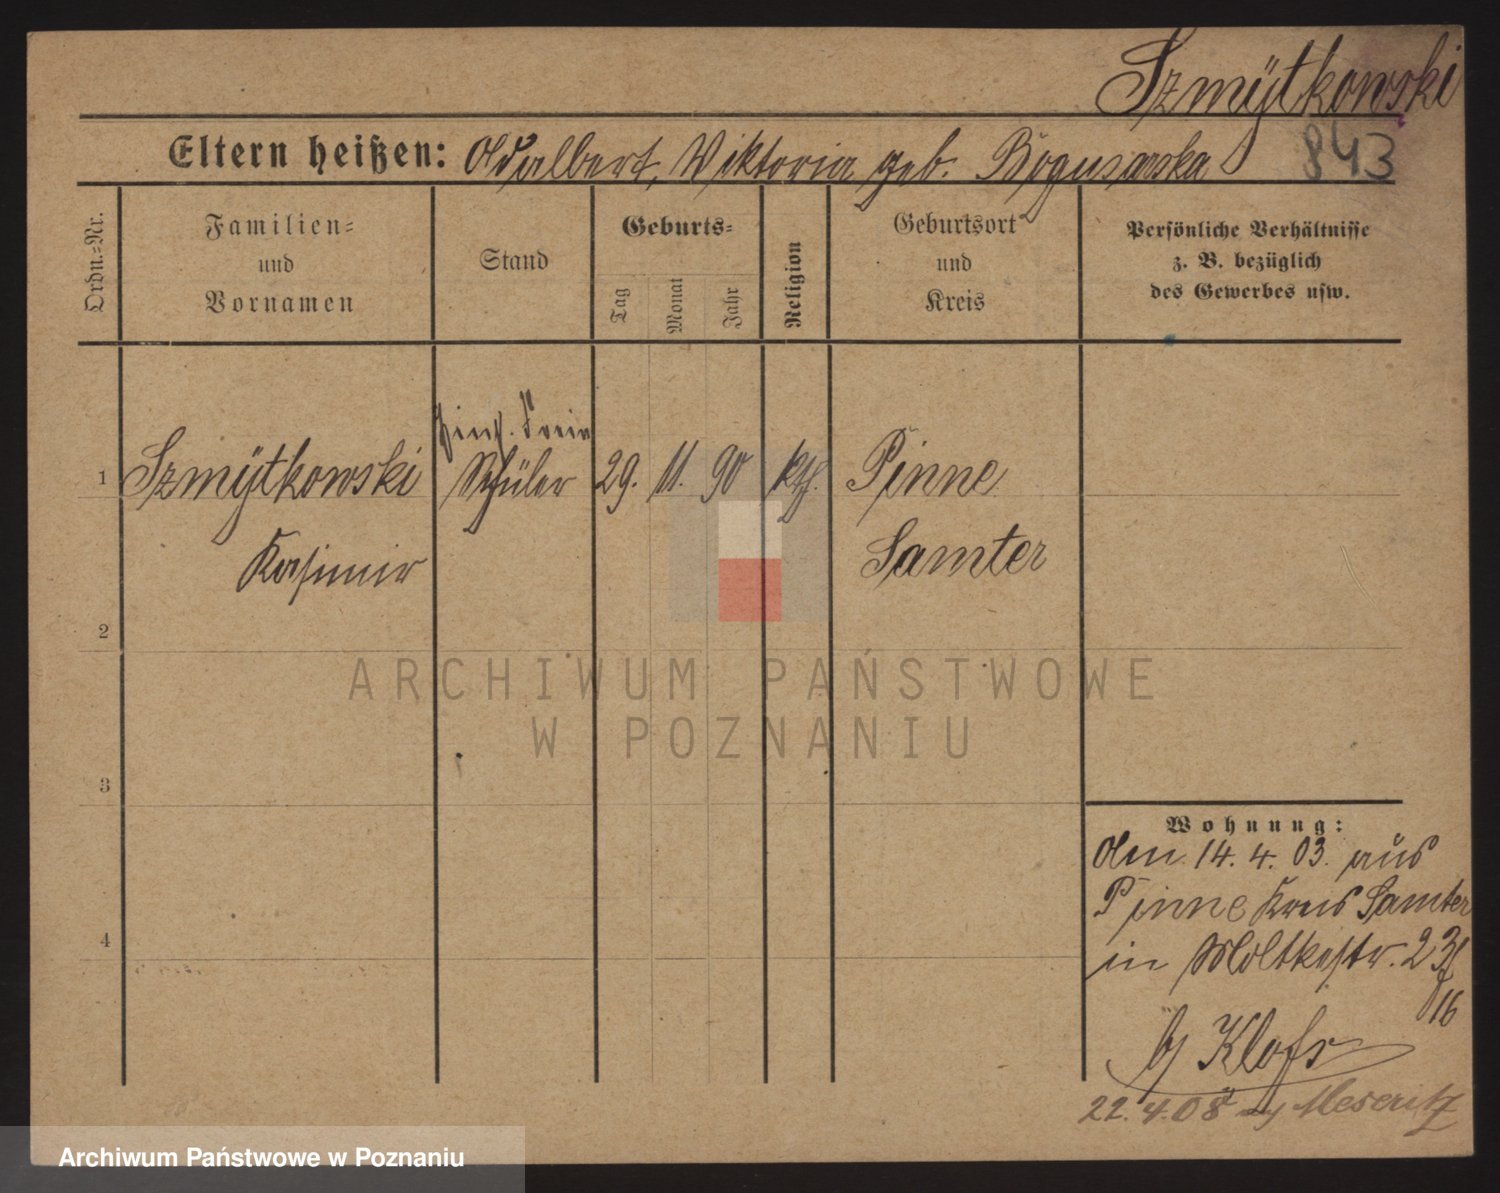 Szmÿtkowski
843
Eltern heißen: Adalbert, Viktoria geb. Bogusarska
Ordn.-Nr.
Familien-
und
Vornamen
Stand
Geburts-
Tag
Monat
Jahr
Religion
Geburtsort
und
Kreis
Persönliche Verhältnisse
z. B. bezüglich
des Gewerbes usw.
1
Szmÿtkowski
Kasimir
Schüler
29. 11. 90
kth.
Pinne
Samter
2
3
4
Wohnung:
Am 14. 4. 03. aus
Pinne Kreis Samter
in Moltkestr. 23
16
22. 4. 08 Meseritz
ARCHIWUM PAŃSTWOWE
W POZNANIU
Archiwum Państwowe w Poznaniu